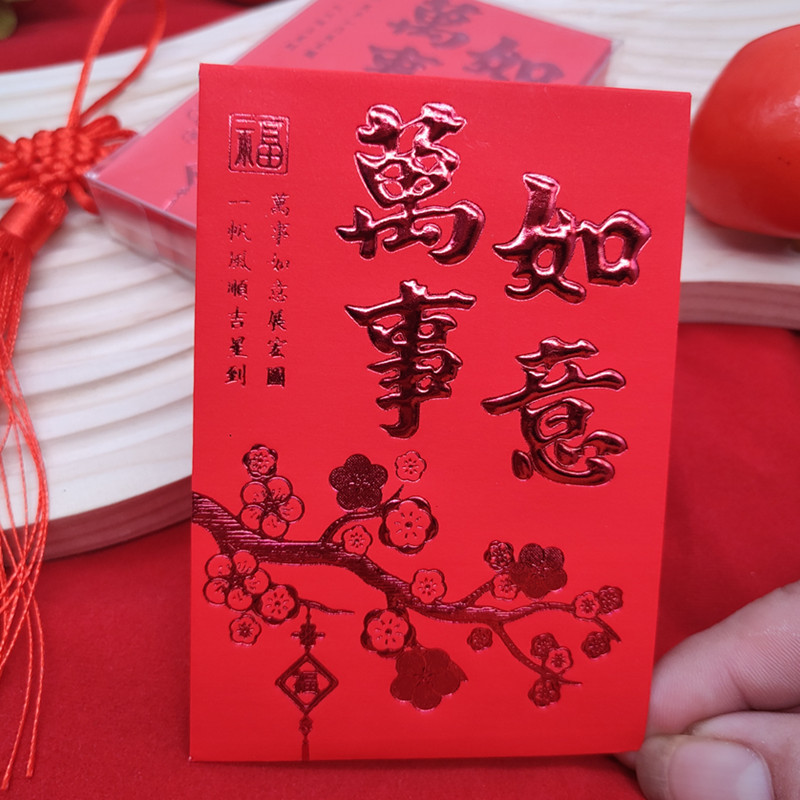 福
萬事
如意
萬事如意展宏圖
一帆風順吉星到
福
萬事
如